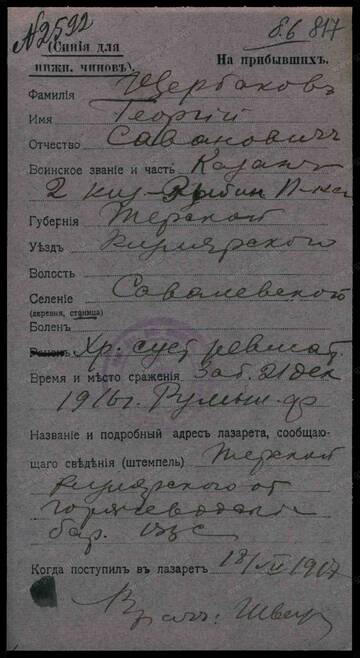 №2592
8.6 817
(Синія для нижн. чиновъ).
На прибывшихъ.
Фамилія Щербаковъ
Имя Георгій
Отчество Савановичъ
Воинское званіе и часть Казакъ
2 Киз-
Губернія Терской
Уѣздъ Кизлярского
Волость
Селеніе Савалевской
(деревня, станица)
Боленъ
Раненъ Хр. суст. ревмат.
Время и мѣсто сраженія Заб. 21 дек
1916 г. Румын. ф
Названіе и подробный адресъ лазарета, сообщаю-
щаго свѣдѣнія (штемпель) Терской
Кизлярского от
горячеводск
бар.
Когда поступилъ въ лазаретъ 18/VI 1917
Врачъ: